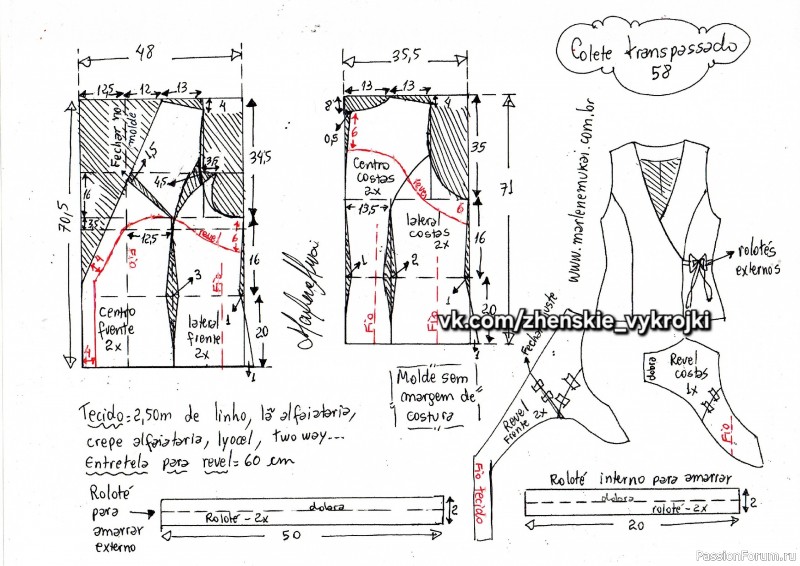 Colete transpassado
58
48
12,5
12
13
4
Fechar no
molde
5
3,5
4,5
34,5
16
3,5
70,5
12,5
revel
6
16
4
Fio
Fio
3
Centro
frente
2x
lateral
frente
2x
1
20
4
1
35,5
13
13
8
4
0,5
6
35
Centro
costas
2x
revel
71
13,5
6
lateral
costas
2x
16
1
2
Fio
Fio
20
1
www.marlenemukai.com.br
rolotês
externos
vk.com/zhenskie_vykrojki
Molde sem
margem de
costura
Fechar ajuste
Revel
Frente 2x
Fio tecido
dobra
Revel
costas
1x
Fio
Tecido=2,50m de linho, lã alfaiataria,
crepe alfaiataria, lyocel, two way...
Entretela para revel=60 cm
Roloté
para
amarrar
externo
dobra
Roloté-2x
2
50
Roloté interno para amarrar
dobra
roloté-2x
2
20
PassionForum.ru